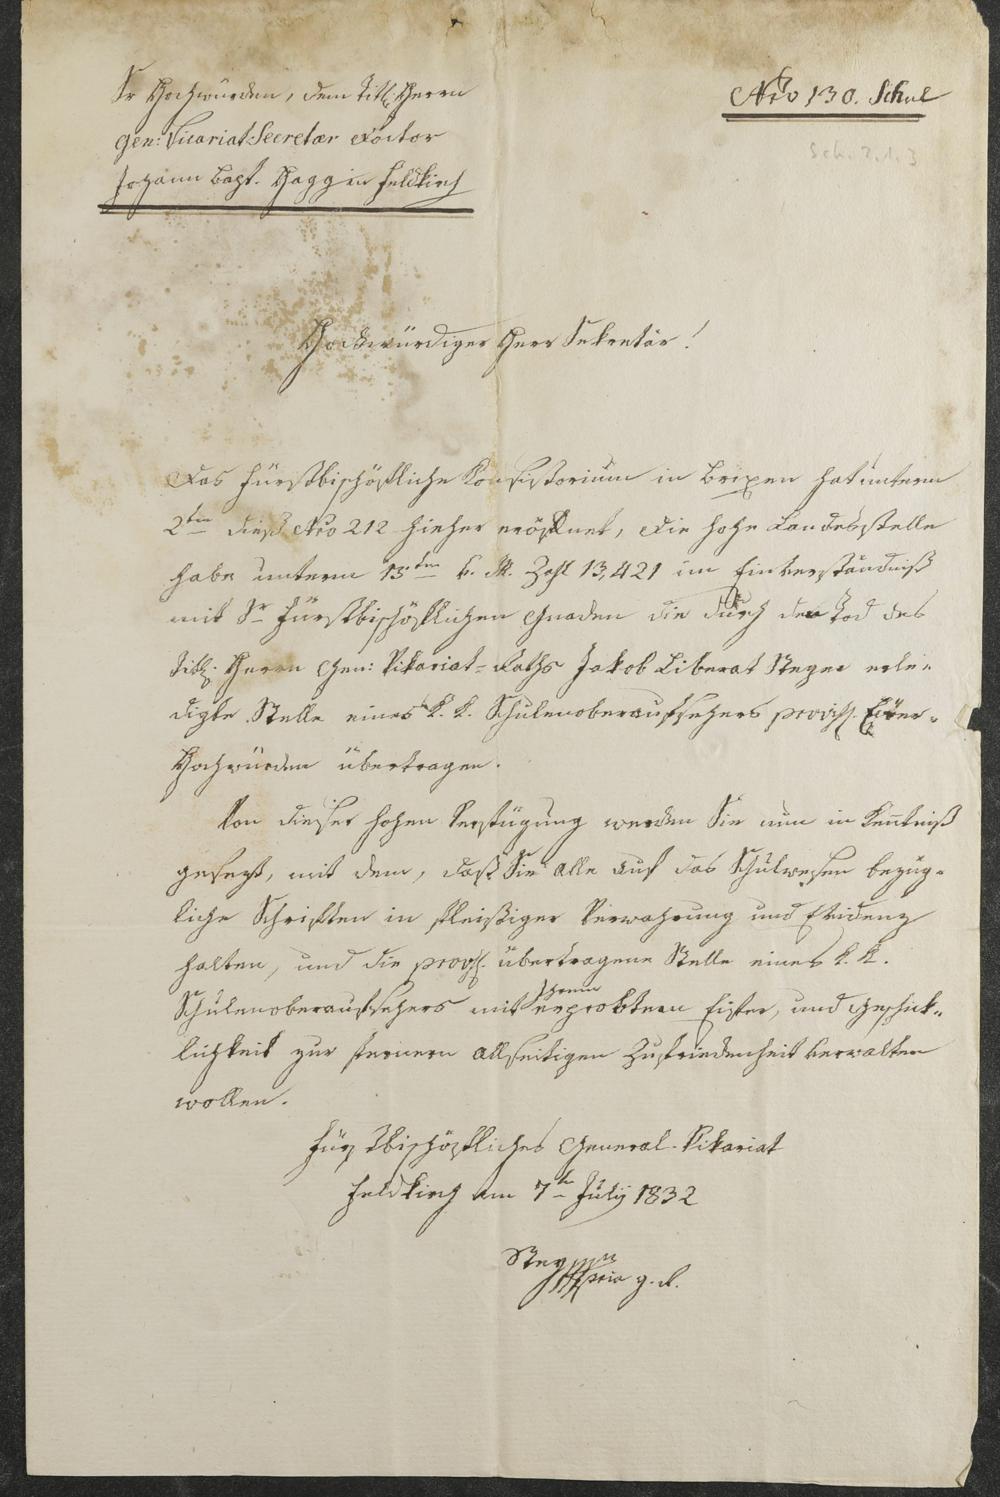 Sr Hochwürden, dem Titl. Herrn
Gen: Vicariat-Secretær Doctor
Johann Bapt. Hagg in Feldkirch
Nro 130. Schul
Sch. 2.1.3
Hochwürdiger Herr Sekretär!
Das fürstbischöfliche Konsistorium in Brixen hat unterm
2ten dieß Nro 212 hieher eröffnet, die hohe Landesstelle
habe unterm 13ten v. M. Zahl 13,421 im Einverständniß
mit Sr fürstbischöflichen Gnaden die durch den Tod des
Titl. Herrn Gen: Vikariat-Raths Jakob Liberat Steger erle-
digte Stelle eines k. k. Schulenoberaufsehers provis. Euer-
Hochwürden übertragen.
Von dieser hohen Verfügung werden Sie nun in Kenntniß
gesezt, mit dem, daß Sie alle auf das Schulwesen bezüg-
liche Schriften in fleißiger Verwahrung und Evidenz
halten, und die provis. übertragene Stelle eines k. k.
Schulenoberaufsehers mit Ihrem erprobten Eifer, und Geschick-
lichkeit zur fernern allseitigen Zufriedenheit verwalten
wollen.
Fürstbischöfliches General-Vikariat
Feldkirch am 7ten July 1832